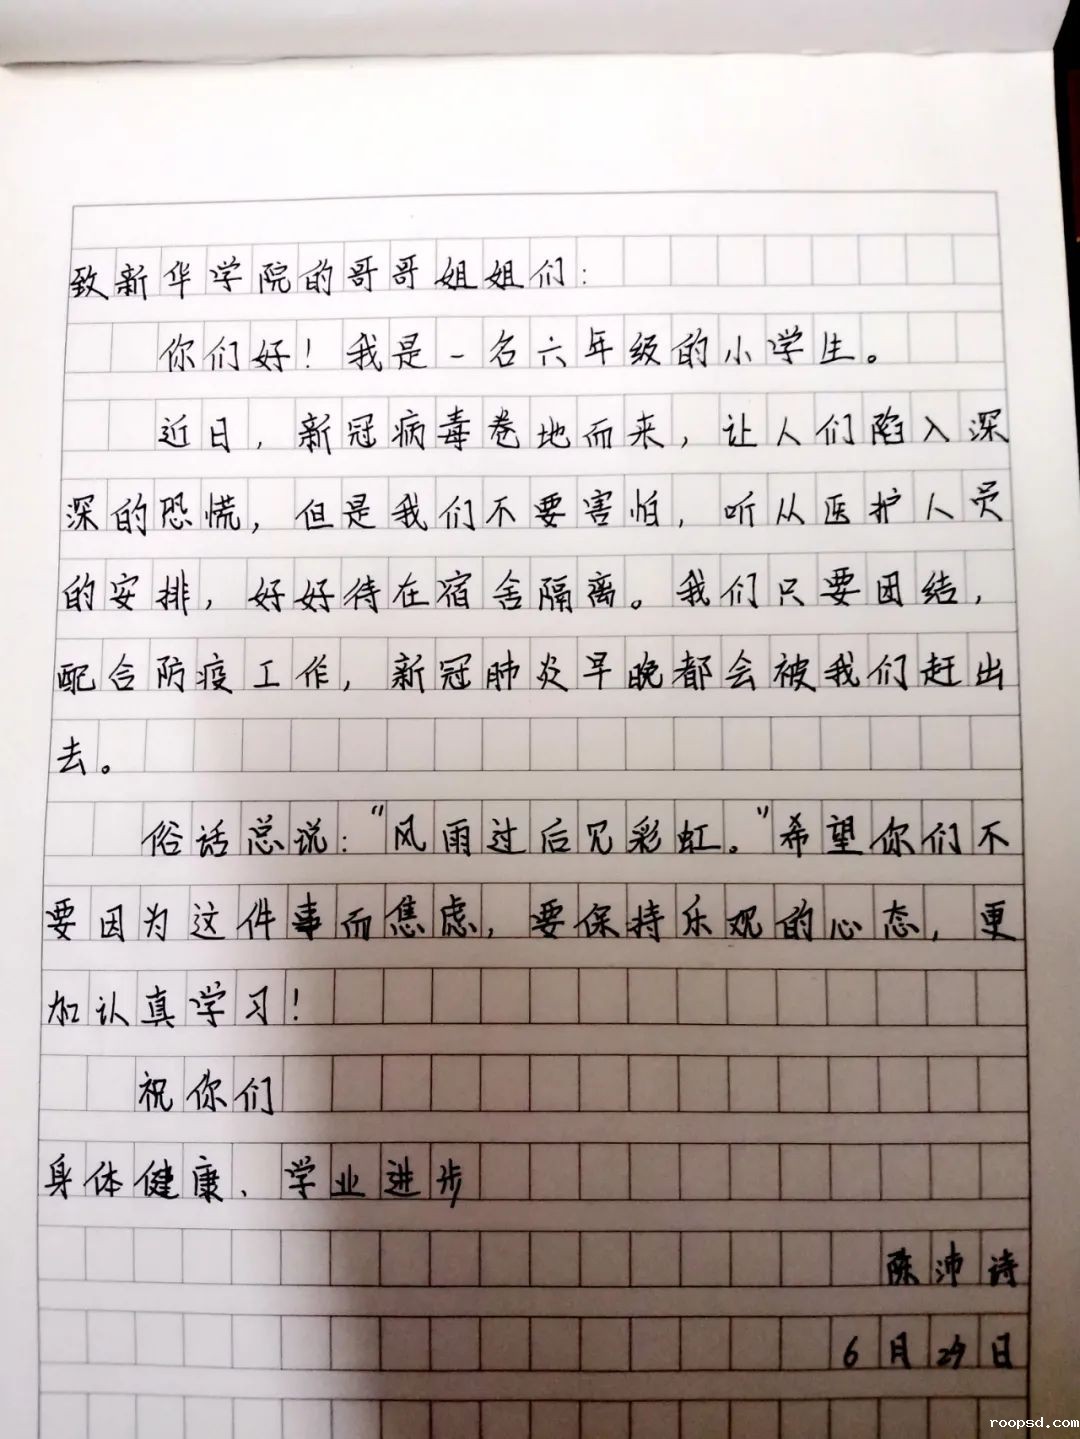 致新华学院的哥哥姐姐们：
你们好！我是一名六年级的小学生。
近日，新冠病毒卷地而来，让人们陷入深
深的恐慌，但是我们不要害怕，听从医护人员
的安排，好好待在宿舍隔离。我们只要团结，
配合防疫工作，新冠肺炎早晚都会被我们赶出
去。
俗话总说：“风雨过后见彩虹。”希望你们不
要因为这件事而焦虑，要保持乐观的心态，更
加认真学习！
祝你们
身体健康、学业进步
陈沛诗
6月29日
roopsd.com